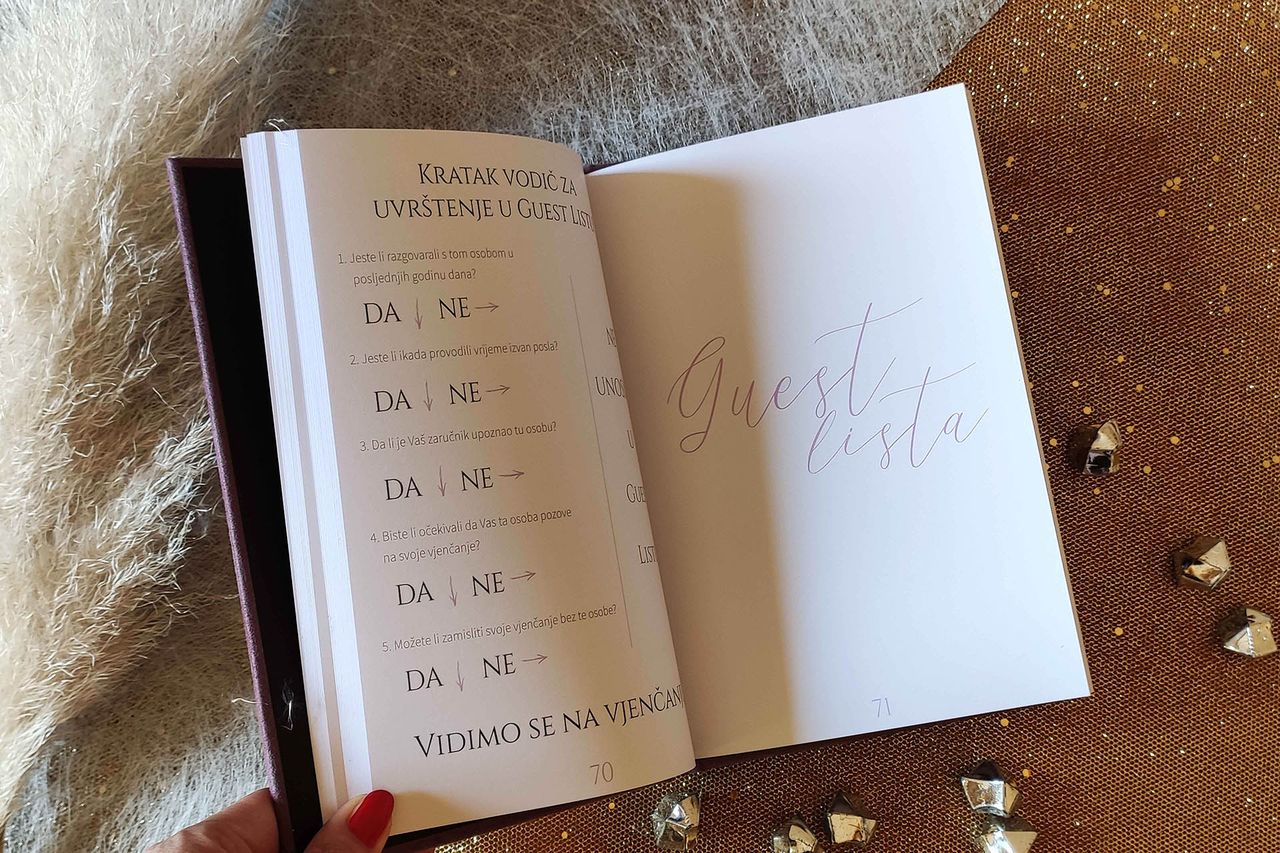 KRATAK VODIČ ZA
UVRŠTENJE U GUEST
1. Jeste li razgovarali s tom osobom u
posljednjih godinu dana?
DA ↓ NE →
2. Jeste li ikada provodili vrijeme izvan posla?
DA ↓ NE →
3. Da li je Vaš zaručnik upoznao tu osobu?
DA ↓ NE →
4. Biste li očekivali da Vas ta osoba pozove
na svoje vjenčanje?
DA ↓ NE →
5. Možete li zamisliti svoje vjenčanje bez te osobe?
DA ↓ NE →
VIDIMO SE NA
70
Guest
lista
71